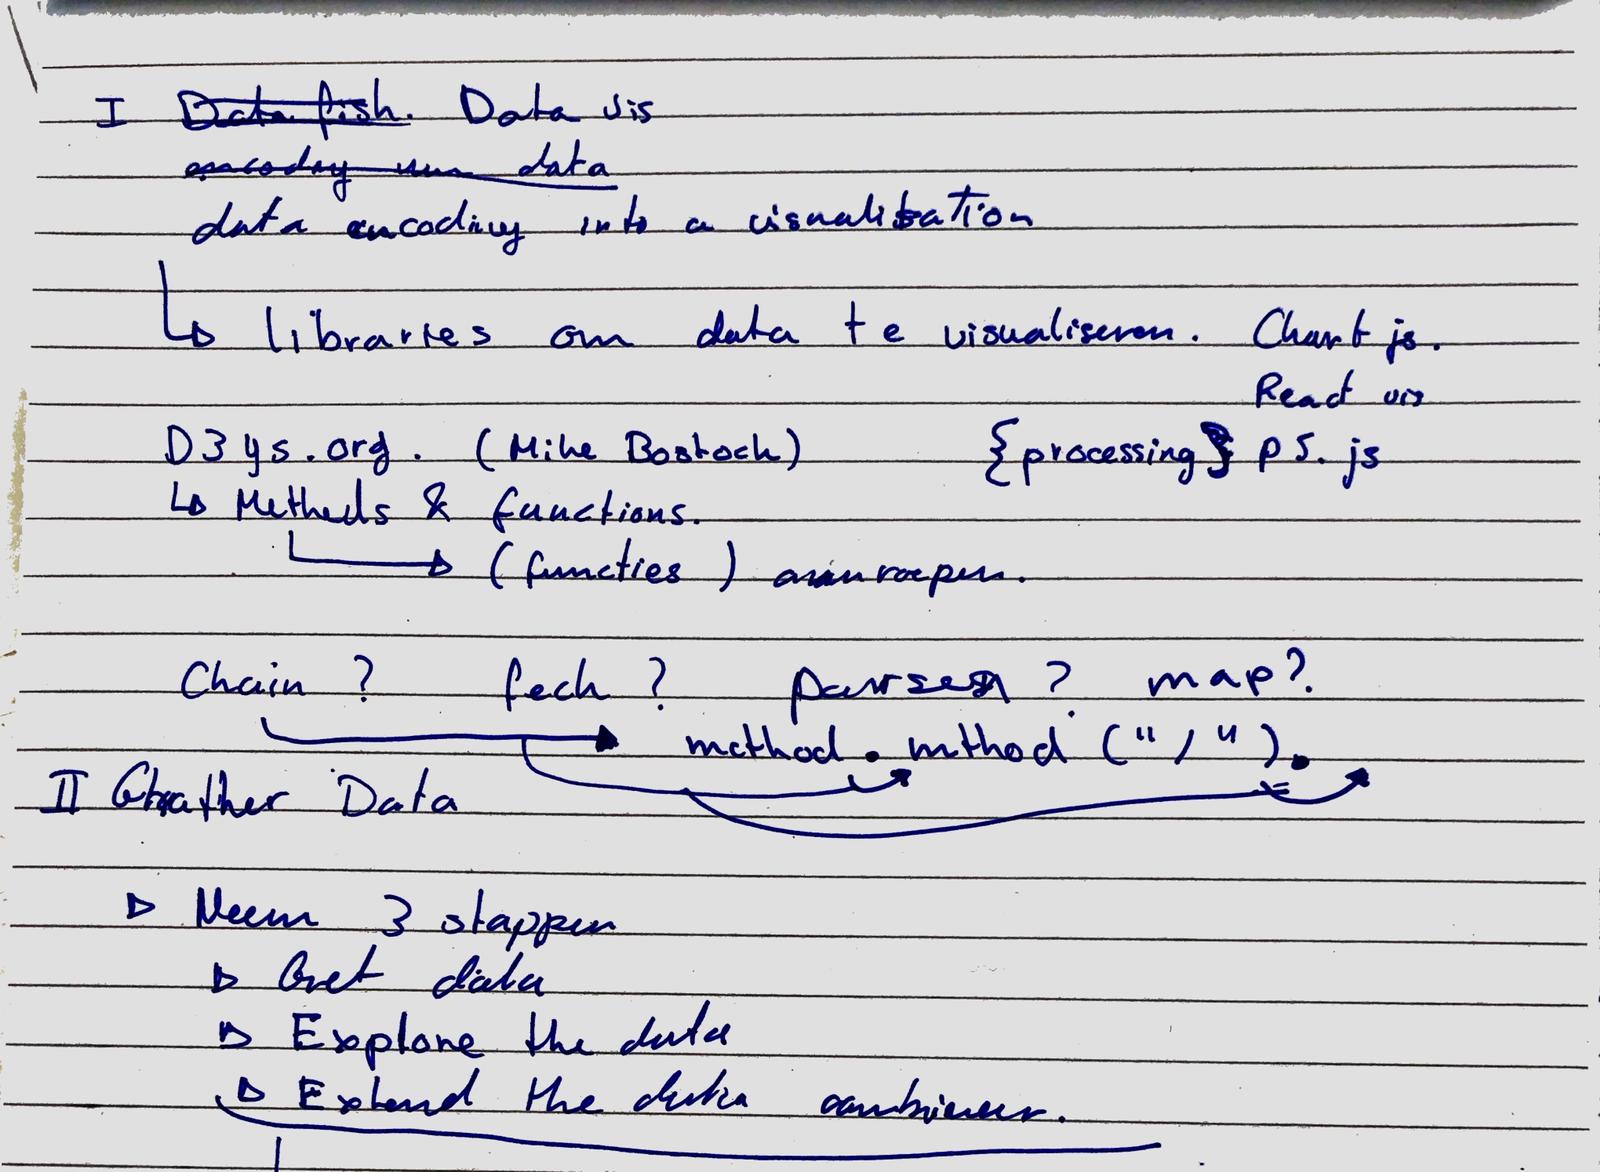 I Data fish. Data vis
encoding van data
data encoding into a visualisation
libraries om data te visualiseren. Chart js.
React vis
D3 js.org. (Mike Bostock) {processing} p5.js
Methods & functions.
(functies) aanroepen.
Chain? fech? parsen? map?
method.method ("/").
II Gather Data
Neem 3 stappen
Get data
Explore the data
Extend the data combineer.